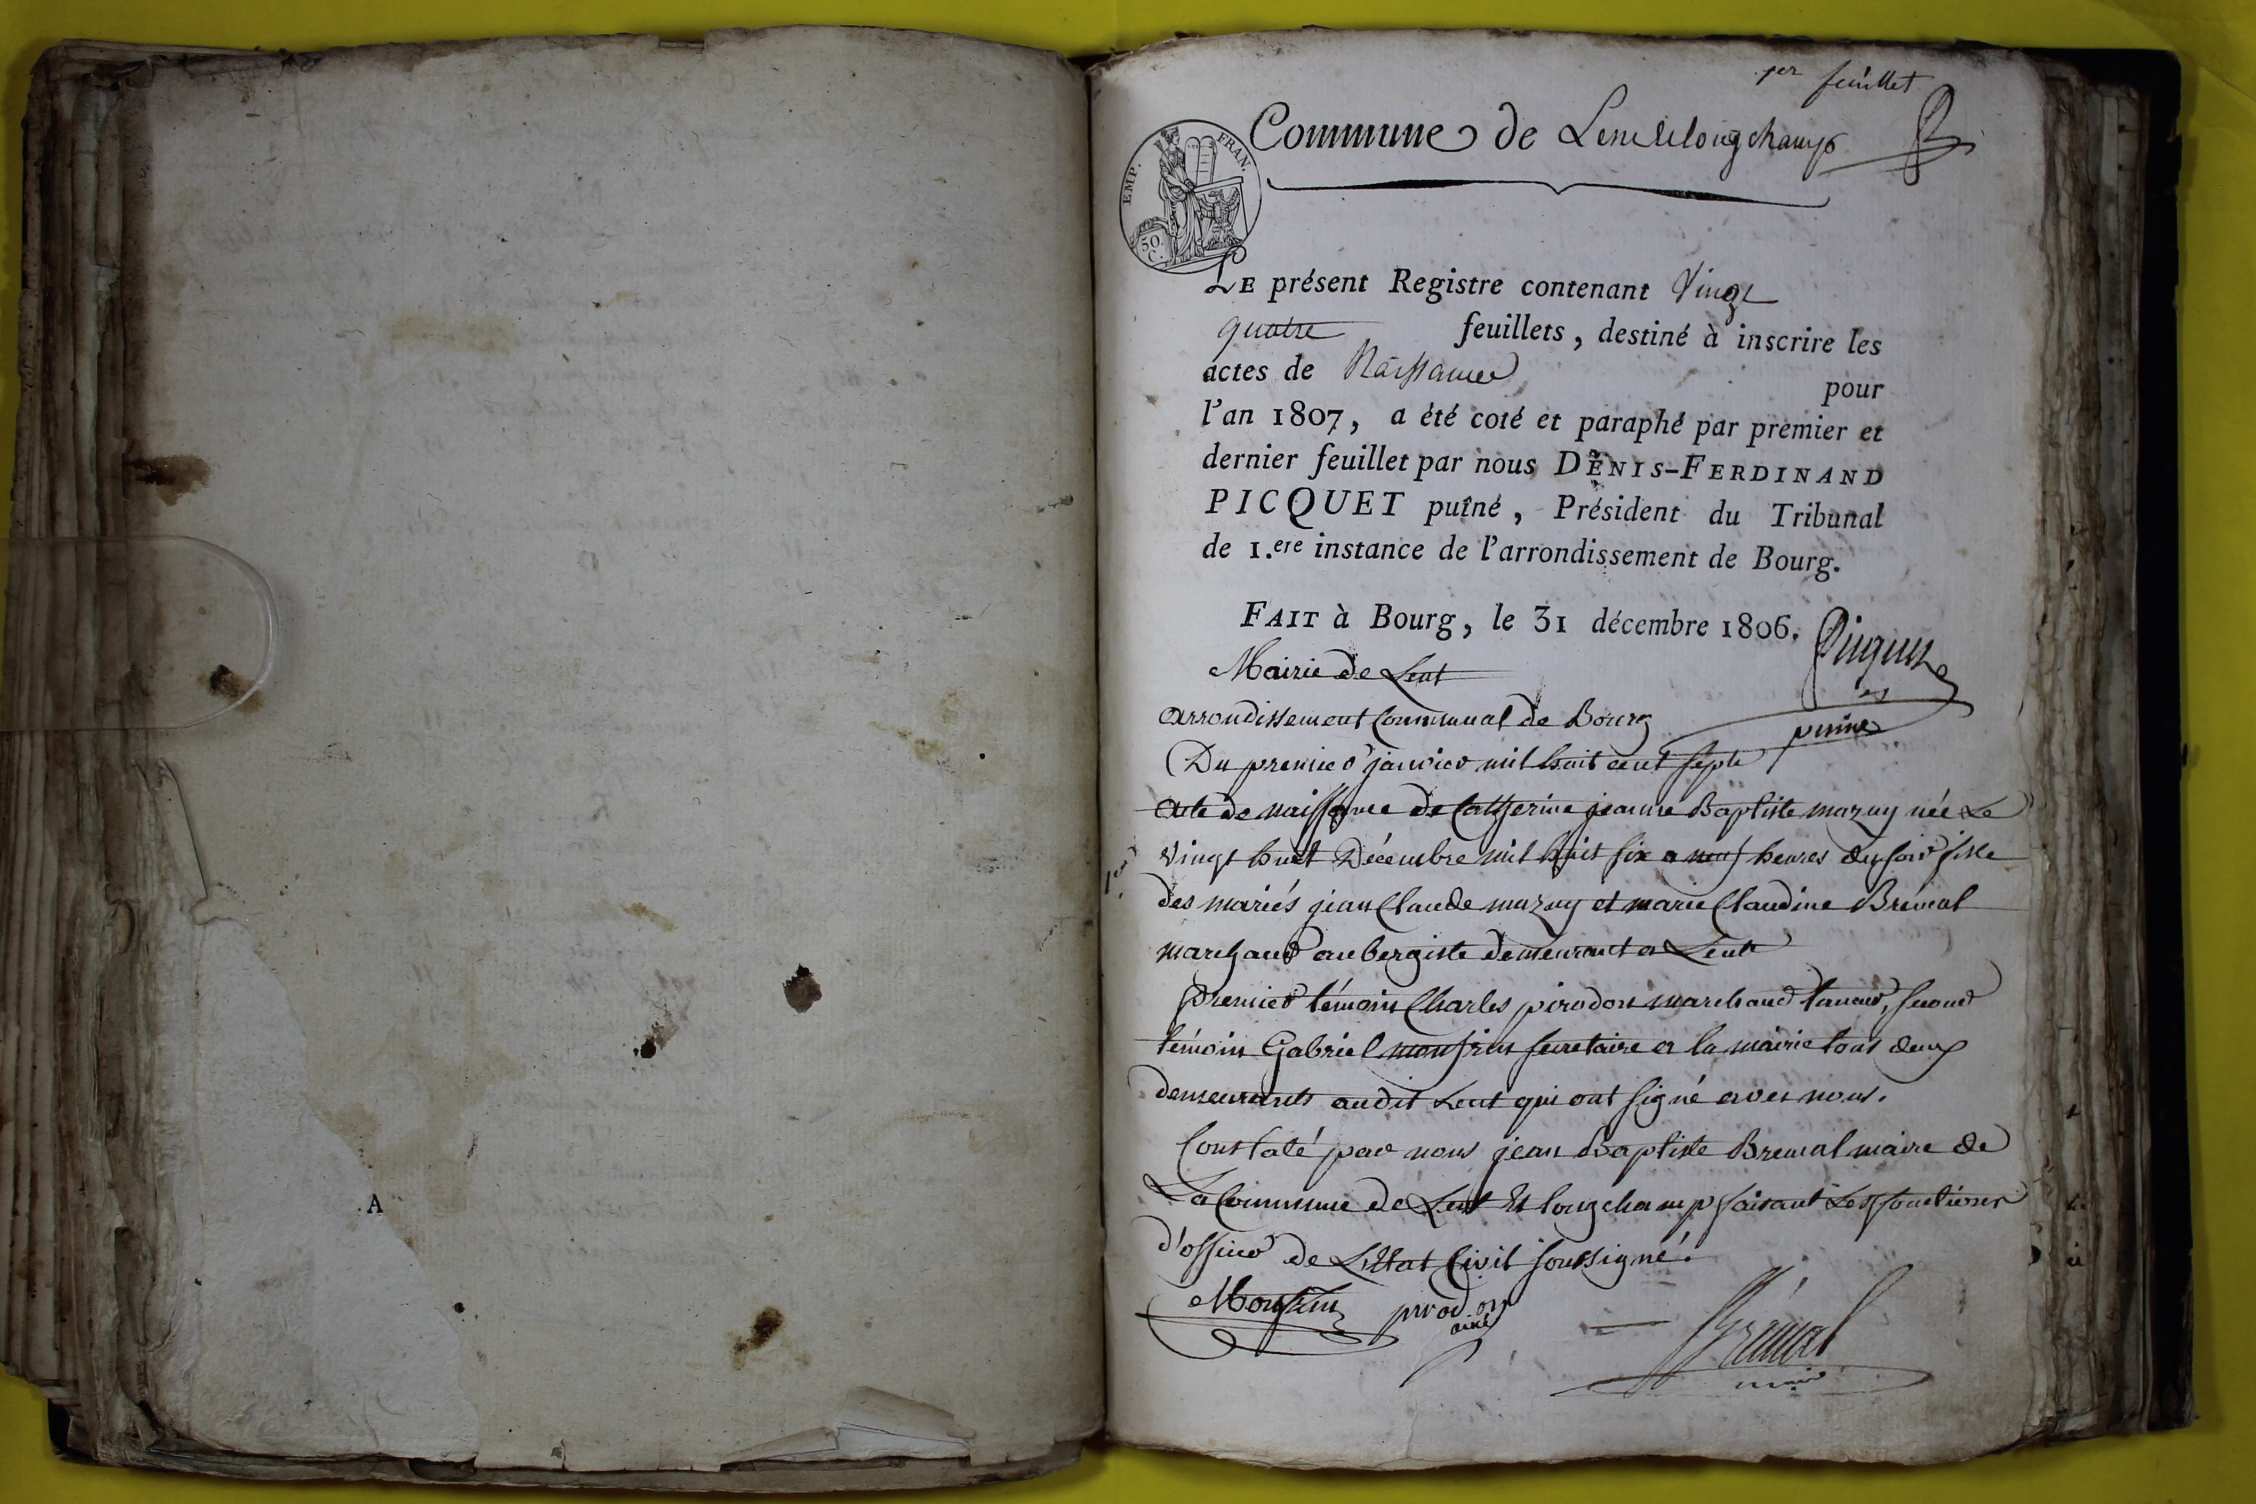 1er feuillet
Commune de Lent et longchamp
EMP. FRAN.
50. C.
LE présent Registre contenant Vingt
quatre feuillets, destiné à inscrire les
actes de Naissance pour
l'an 1807, a été coté et paraphé par premier et
dernier feuillet par nous DENIS-FERDINAND
PICQUET puîné, Président du Tribunal
de 1.ere instance de l'arrondissement de Bourg.
FAIT à Bourg, le 31 décembre 1806.
Picquet
puiné
Mairie de Lent
arrondissement Communal de Bourg
Du premier janvier mil huit cent sept
acte de naissance de Catherine jeanne Baptiste mazuy née Le
vingt huit Décembre mil huit six a neuf heures du soir fille
des mariés jean Claude mazuy et marie Claudine Bréval
marchand aubergiste demeurant a Lent
premier témoin Charles pirodon marchand tanneur, second
témoin Gabriel monfrin secretaire a la mairie tous deux
demeurants audit Lent qui ont signé avec nous.
Constaté par nous jean Baptiste Breval maire de
La Commune de Lent Et longchamp faisant Les fonctions
d'officier de L'Etat Civil soussigné.
Monfrin pirodon
ainé
Bréval
maire
1er
A